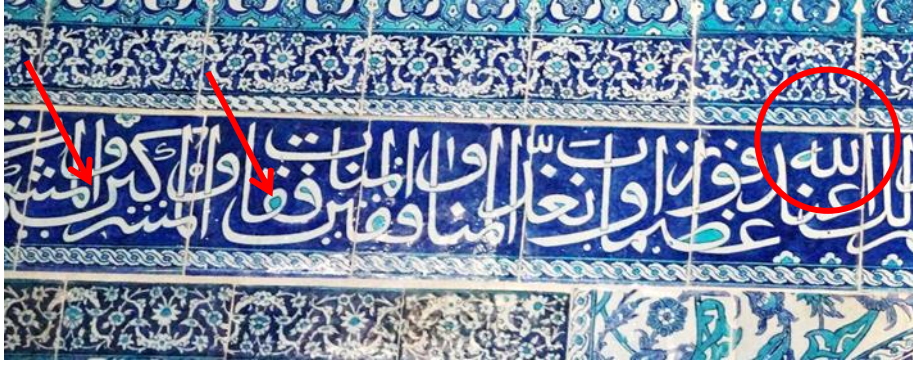 ذلك عند الله فوزا عظيما ويعذب المنافقين والمنافقات والمشركين